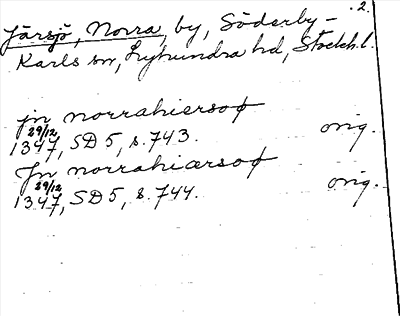 2.
Järsjö, Norra, by, Söderby-
Karls sn, Lyhundra hd, Stockh.l.
jn norrahiersoø
29/12 1347, SD 5, s. 743. orig.
Jn norrahiærsoø
29/12 1347, SD 5, s. 744. orig.